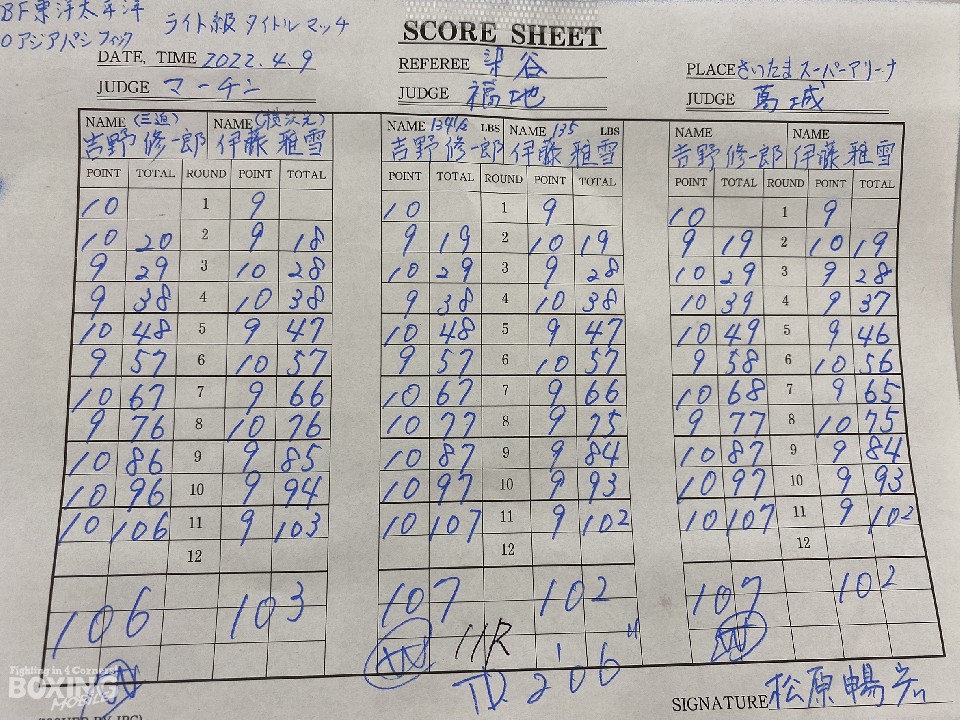 BF東洋太平洋 ライト級 タイトルマッチ
O アジアパシフィック
SCORE SHEET
DATE, TIME 2022.4.9 REFEREE 染谷 PLACE さいたまスーパーアリーナ
JUDGE マーチン JUDGE 福地 JUDGE 葛城
NAME (三迫) NAME (横浜光) NAME 134 1/2 LBS NAME 135 LBS NAME NAME
吉野修一郎 伊藤雅雪 吉野修一郎 伊藤雅雪 吉野修一郎 伊藤雅雪
POINT TOTAL ROUND POINT TOTAL POINT TOTAL ROUND POINT TOTAL POINT TOTAL ROUND POINT TOTAL
10 1 9 10 1 9 10 1 9
10 20 2 9 18 9 19 2 10 19 9 19 2 10 19
9 29 3 10 28 10 29 3 9 28 10 29 3 9 28
9 38 4 10 38 9 38 4 10 38 10 39 4 9 37
10 48 5 9 47 10 48 5 9 47 10 49 5 9 46
9 57 6 10 57 9 57 6 10 57 9 58 6 10 56
10 67 7 9 66 10 67 7 9 66 10 68 7 9 65
9 76 8 10 76 10 77 8 9 75 9 77 8 10 75
10 86 9 9 85 10 87 9 9 84 10 87 9 9 84
10 96 10 9 94 10 97 10 9 93 10 97 10 9 93
10 106 11 9 103 10 107 11 9 102 10 107 11 9 102
12 12 12
106 103 107 102 107 102
W W 11R W
TD 2'06"
SIGNATURE 松原暢宏
Fighting in 4 Corners
BOXING
MOBILE